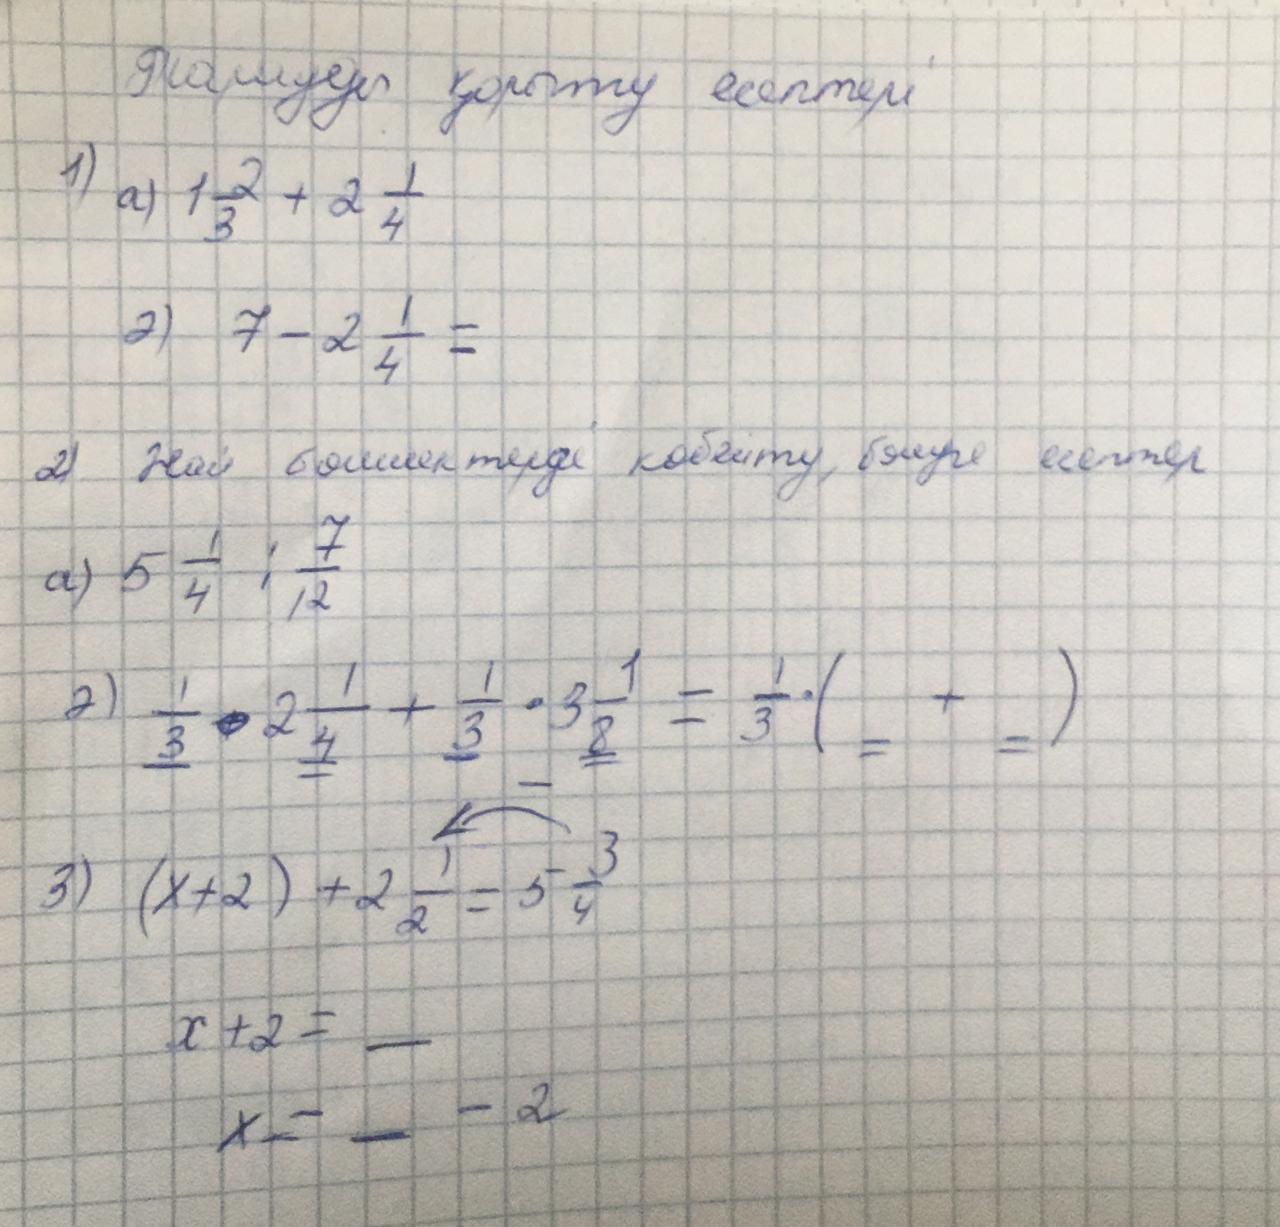 қорыту есептері
1) а) 1 2/3 + 2 1/4
ә) 7 - 2 1/4 =
2) Жай бөлшектерді көбейту, бөлуге есептер
а) 5 1/4 : 7/12
ә) 1/3 · 2 1/4 + 1/3 · 3 1/8 = 1/3 · ( + )
3) (x+2) + 2 1/2 = 5 3/4
x + 2 = _
x = _ - 2